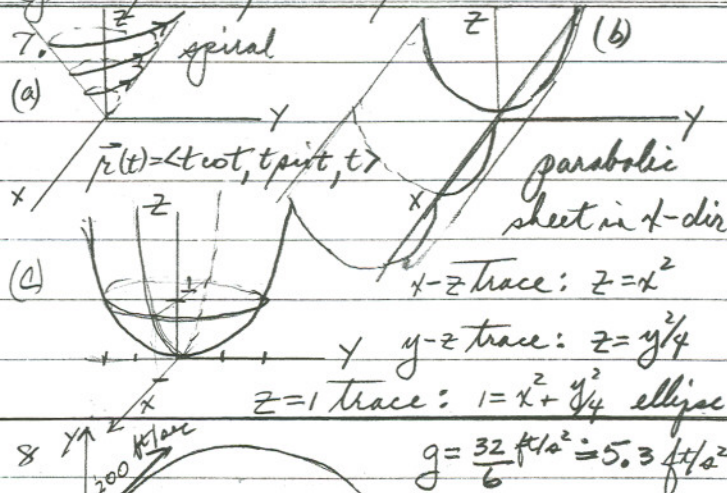 7. Z spiral
(a) Y
X
r⃗(t)=<t cos t, t sin t, t>
Z (b)
Y
X
parabolic
sheet in x-dir
(c) Z
1
Y
X
x-z Trace: z=x²
y-z trace: z=y²/4
z=1 Trace: 1=x²+y²/4 ellipse
8 Y 200 ft/sec
g=32/6 ft/s² ≐5.3 ft/s²